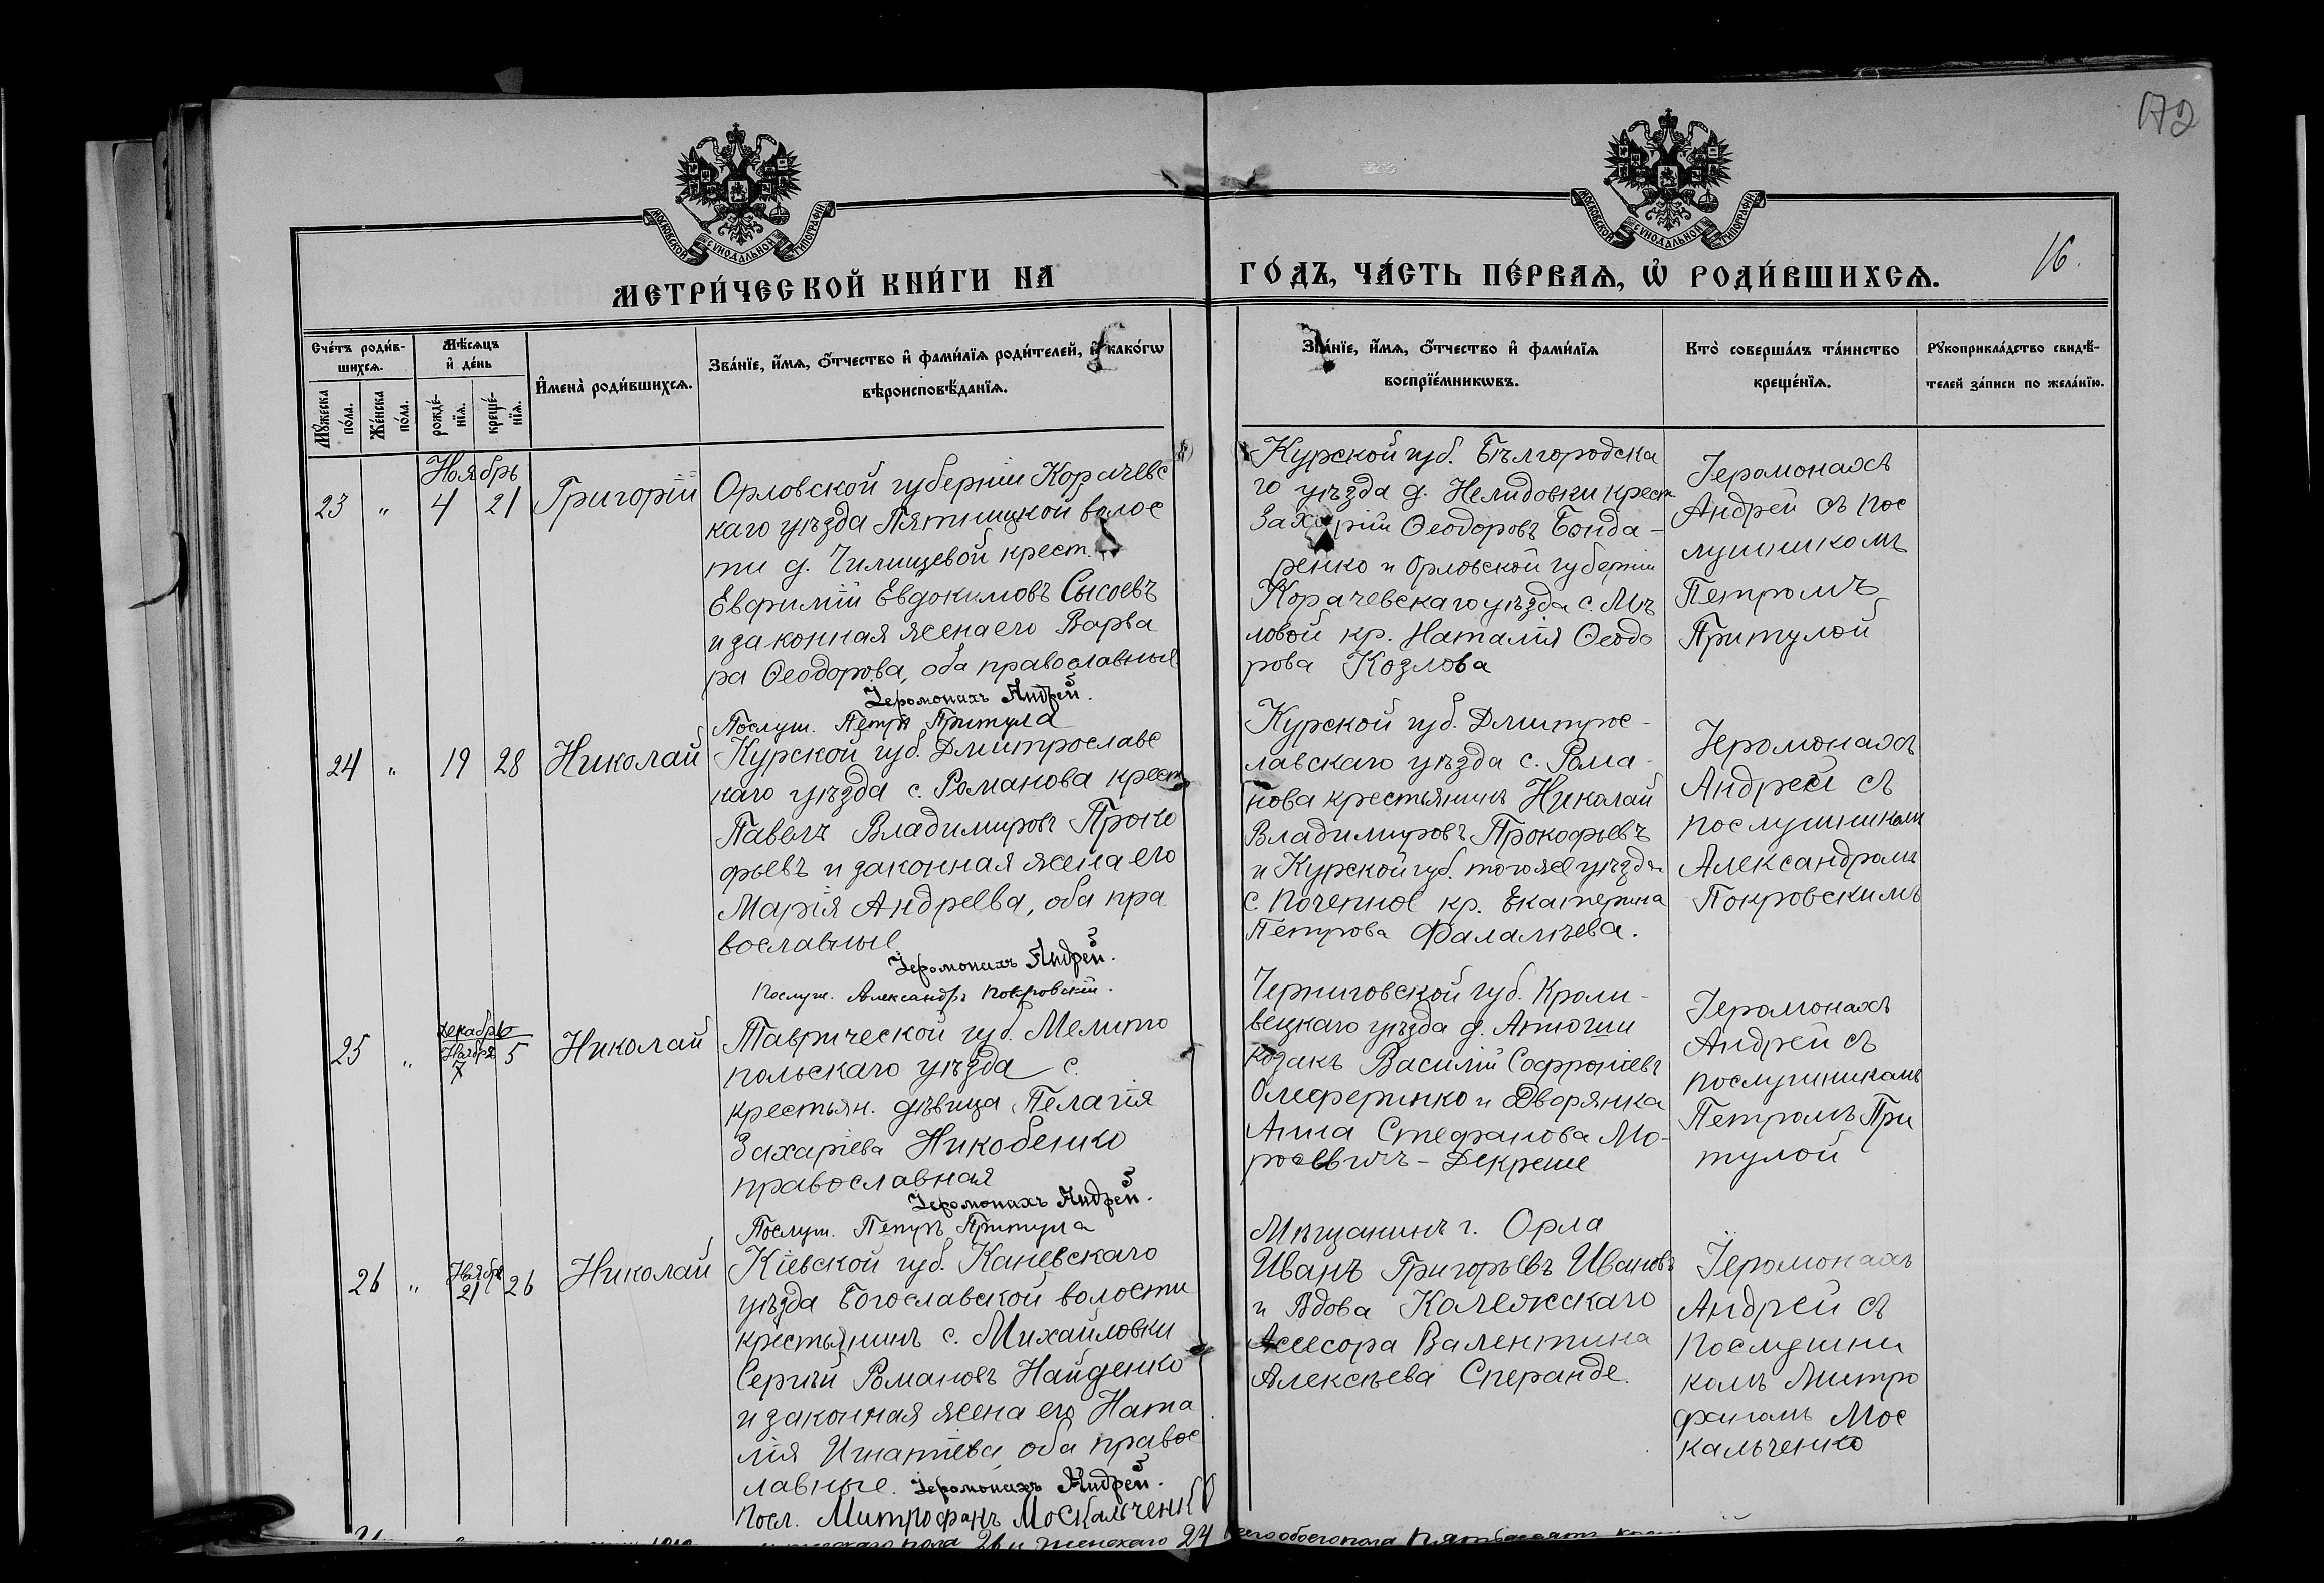 172
МОСКОВСКОЙ СѴНОДАЛЬНОЙ ТИПОГРАФІИ
МОСКОВСКОЙ СѴНОДАЛЬНОЙ ТИПОГРАФІИ
МЕТРИ́ЧЕСКОЙ КНИ́ГИ НА
ГО́ДЪ, ЧА́СТЬ ПЕ́РВАѦ, Ѡ҆ РОДИ́ВШИХСѦ.
16.
Сче́тъ роди́в-
шихсѧ.
Мꙋ́жеска
по́ла.
Же́нска
по́ла.
Мѣ́сѧцъ
и҆ де́нь
рожде́-
нїѧ.
креще́-
нїѧ.
И҆мена̀ роди́вшихсѧ.
Зва́нїе, и҆́мѧ, ѻ҆́тчество и҆ фами́лїѧ роди́телей, и҆ како́гѡ
вѣроисповѣ́данїѧ.
Зва́нїе, и҆́мѧ, ѻ҆́тчество и҆ фами́лїѧ
воспрїе́мникѡвъ.
Кто̀ соверша́лъ та́инство
креще́нїѧ.
Рꙋкоприкла́дство свидѣ́-
телей за́писи по жела́нїю.
Ноябрь
23 " 4 21 Григорій
Орловской губерніи Корачевс
каго уѣзда Пятницкой волос
ти д. Чилищевой крест.
Евфимій Евдокимовъ Сысоевъ
и законная жена его Варва
ра Ѳеодорова, оба православные
Іеромонахъ Андрей.
Послуш. Петръ Притула
Курской губ. Бѣлгородска
го уѣзда д. Нелидовки крест
Захарій Ѳеодоровъ Бонда-
ренко и Орловской губерніи
Корачевскаго уѣзда с. Мѣ
ловой кр. Наталія Ѳеодо
рова Козлова
Іеромонахъ
Андрей съ пос
лушникомъ
Петромъ
Притулой
24 " 19 28 Николай
Курской губ. Дмитрославс
каго уѣзда с. Романова крест
Павелъ Владимировъ Проко
фьевъ и законная жена его
Марія Андреева, оба пра
вославные
Іеромонахъ Андрей.
Послуш. Александръ Покровскій.
Курской губ. Дмитрос-
лавскаго уѣзда с. Рома-
нова крестьянинъ Николай
Владимировъ Прокофьевъ
и Курской губ. того же уѣзда
с Почепное кр. Екатерина
Петрова Фалалѣева.
Іеромонахъ
Андрей съ
послушником
Александромъ
Покровскимъ
Декабрь
25 " Ноября 7 5 Николай
Таврической губ. Мелито
польскаго уѣзда с.
крестьян. дѣвица Пелагія
Захаріева Никобенко
православная
Іеромонахъ Андрей.
Послуш. Петръ Притула
Черниговской губ. Кроле-
вецкаго уѣзда д.
козакъ Василій Софроніевъ
Олеференко и Дворянка
Анна Стефанова Мо-
Іеромонахъ
Андрей съ
послушникомъ
Петромъ При
тулой
26 " Ноября 21 26 Николай
Кіевской губ. Каневскаго
уѣзда Богославской волости
крестьянинъ с. Михайловки
Сергій Романовъ Найденко
и законная жена его Ната
лія Игнатіева, оба правос
лавные. Іеромонахъ Андрей.
Посл. Митрофанъ Москальченко
Мѣщанинъ г. Орла
Иванъ Григорьевъ Ивановъ
и Вдова Колежскаго
Асесора Валентина
Алексѣева Сперанде.
Іеромонахъ
Андрей съ
послушни
комъ Митро
фаномъ Мос
кальченко
пола 26 и женскаго 24 всего обоего пола пятьдесятъ